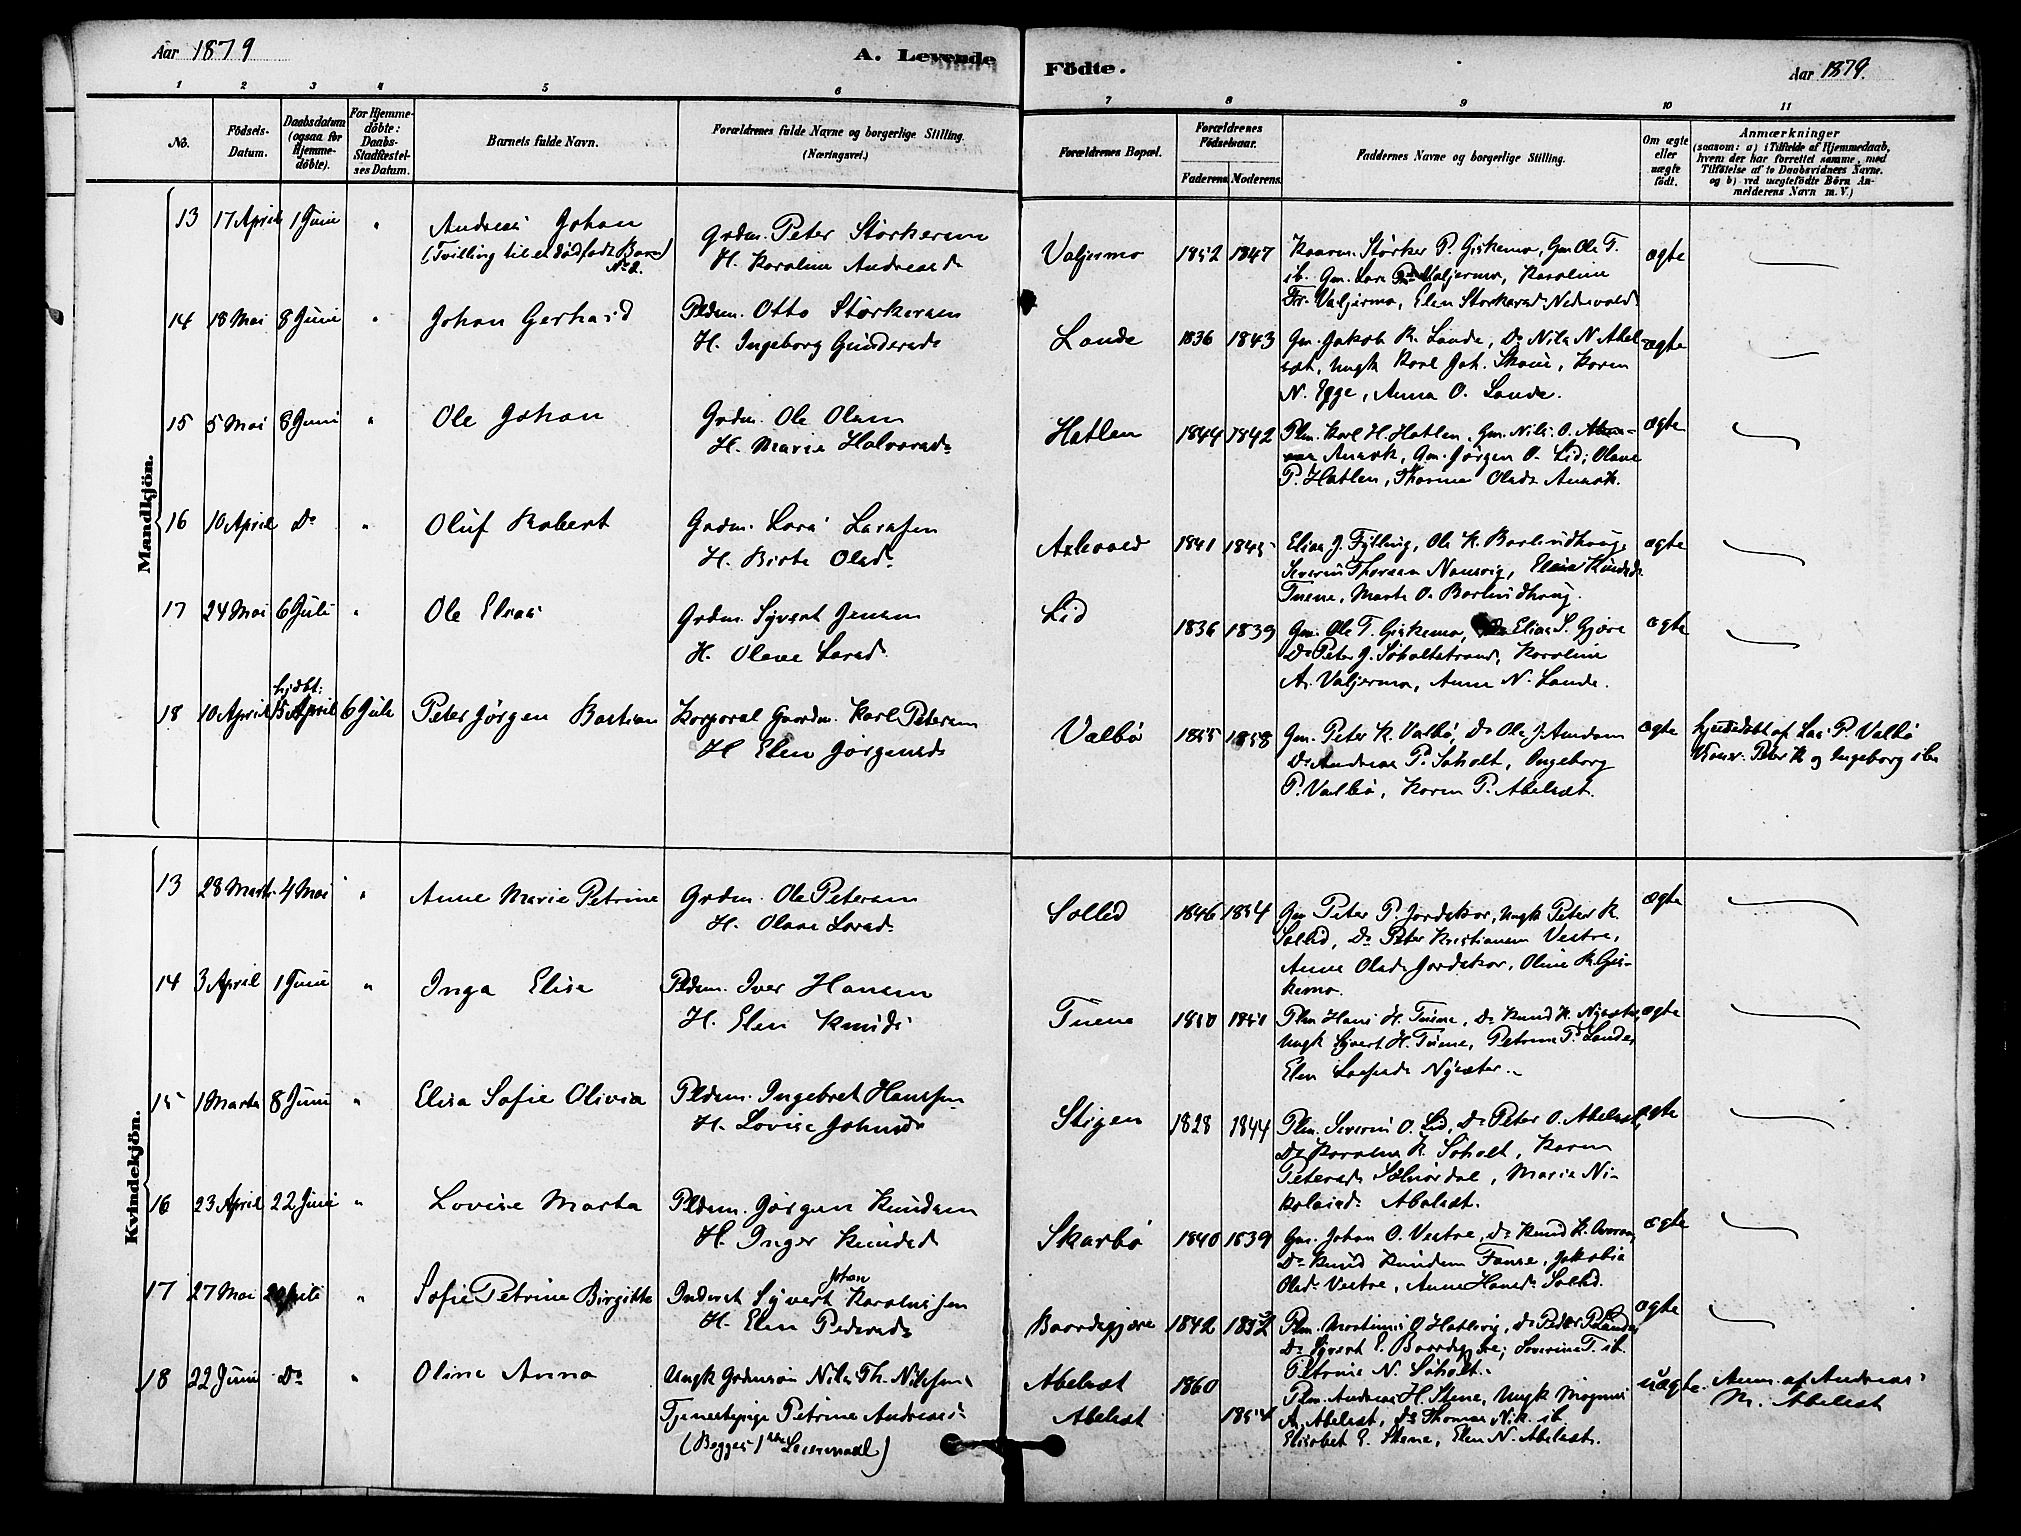 Aar 1879
A. Levende
Födte.
Aar 1879.
1 2 3 4 5 6 7 8 9 10 11
No.
Födsels-
Datum.
Daabsdatum
(ogsaa for
Hjemme-
döbte).
For Hjemme-
döbte:
Daabs-
Stadfæstel-
ses Datum.
Barnets fulde Navn.
Forældrenes fulde Navne og borgerlige Stilling.
(Næringsvei.)
Forældrenes Bopæl.
Forældrenes
Födselsaar.
Faderens. Moderens.
Faddernes Navne og borgerlige Stilling.
Om ægte
eller
uægte
födt.
Anmærkninger
(saasom: a) i Tilfælde af Hjemmedaab,
hvem der har forrettet samme, med
Tilföielse af to Daabsvidners Navne.
og b) ved uægtefödte Börn An-
melderens Navn m. V.)
Mandkjön.
13 17 April 1 Juni " Andreas Johan
(Tvilling til et dødfødt Barn
No 2.
Grdm. Peter Størkersen
H. Karoline Andreasd.
Valjermo 1852 1847
Kaarm. Størker P. Giskemo, Gm. Ole T.
ib. Gm. Lars Valjermo, Karoline
Valjermo, Elen Størkersd. Nedrevold
ægte
14 18 Mai 8 Juni " Johan Gerhard
Pldsm. Otto Størkersen
H. Ingeborg Gundersd.
Lande 1836 1843
Gm. Jakob K. Lande, Do Nils N. Abel-
sæt, Ungk Karl Joh. Skaue, Karen
N. Egge, Anna O. Lande.
ægte
15 5 Mai 8 Juni " Ole Johan
Grdm. Ole Olsen
H. Marie Halvorsd.
Hatlen 1844 1842
Plm. Karl H. Hatlen, Gm. Nils O.
Aurok, Gm. Jørgen O. Lid, Olave
P. Hatlen, Olsd. Aurok.
ægte
16 10 April Do " Oluf Robert
Grdm. Lars Larssen
H. Birte Olsd.
1841 1845
Elias J. Fylling, Ole K. Barlindhaug,
Severin Thorsen Nausvig, Knudsd.
Tuene, Marte O. Barlindhaug.
ægte
17 24 Mai 6 Juli " Ole Elias
Grdm. Syvert Jensen
H. Olave Larsd.
Lid 1836 1839
Gm. Ole T. Giskemo, Do Elias S. Gjære
Do Peter J. Søholtstrand, Karoline
A. Valjermo, Anne N. Lande.
ægte
18 10 April hjdbt: 15 April 6 Juli Peter Jørgen Bastian
Korporal Gaardm. Karl Petersen
H. Elen Jørgensd.
Valbø 1855 1858
Gm. Peter K. Valbø, Do Ole J. Amdam
Do Andreas P. Søholt, Ingeborg
P. Valbø, Karen P. Abelsæt.
ægte
hjemdøbt af Lars P. Valbø
Peter K og Ingeborg
Kvindekjön.
13 28 Marts 4 Mai " Anne Marie Petrine
Grdm. Ole Petersen
H. Olave Larsd.
Sollid 1846 1854
Gm Peter P. Jordskar, Ungk Peter K.
Sollid, Do Peter Kristiansen Vestre,
Anne Olsd. Jordskor, Oline K. Gis-
kemo.
ægte
14 3 April 1 Juni " Inga Elise
Pldsm. Iver Hansen
H. Elen Knuds.
Tuene 1850 1851
Plm Hans H. Tuene, Do Knud K. Nysæter,
Ungk Syvert H. Tuene, Petrine P. Lande,
Elen Nysæter.
ægte
15 1 Marts 8 Juni " Elisa Sofie Olivia
Pldsm. Ingebret Hanssen
H. Lovise Johnsd.
Stigen 1828 1844
Plm. Severin O. Lid, Do Peter O. Abelsæt,
Do Karolus K. Søholt, Karen
Petersd. Solnørdal, Marie Ni-
kolaisd. Abelsæt.
ægte
16 23 April 22 Juni " Lovise Marta
Pldsm. Jørgen Knudsen
H. Inger Knudsd.
Skarbø 1840 1839
Gm. Johan O. Vestre, Do Knud K.
Do Knud Knudsen Fauske, Jakobia
Olsd. Vestre, Anne Hansd. Sollid.
ægte
17 27 Mai 20 Juli " Sofie Petrine Birgitte
Inderst Syvert Johan Karolussen
H. Elen Pedersd.
Baardsgjære 1842 1852
Plm. Martinus O. Hatlevig, Do Peder P. Lande,
Do Syvert E. Baardsgjære, Severine T. ib.
Petrine N. Søholt.
ægte
18 22 Juni Do " Oline Anna
Ungk Grdmsøn Nils Th. Nilssen
Tjenestepige Petrine Andreasd.
(Begges 1ste Leiermaal)
Abelsæt 1860
Abelsæt 1854
Plm. Andreas H. Stene, Ungk Magnus
A. Abelsæt, Do Thomas Nik. ib.
Elisabet E. Stene, Elen N. Abelsæt.
uægte
Anm. af Andreas
M. Abelsæt